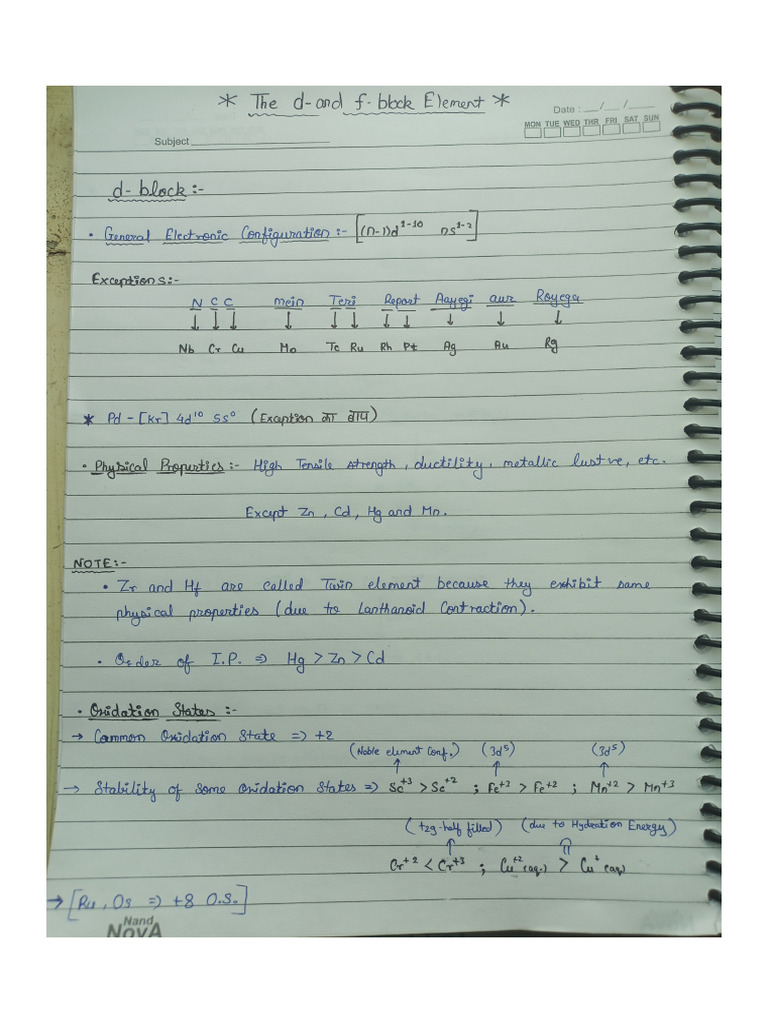 * The d-and f-block Element *
Date : __/__/____
MON TUE WED THR FRI SAT SUN
Subject
d-block :-
• General Electronic Configuration :- [(n-1)d¹⁻¹⁰ ns¹⁻²]
Exceptions:-
N C C mein Teri Report Aayegi aur Royega
↓ ↓ ↓ ↓ ↓ ↓ ↓ ↓ ↓ ↓
Nb Cr Cu Mo Tc Ru Rh Pt Ag Au Rg
* Pd - [Kr] 4d¹⁰ 5s⁰ (Exaption का बाप)
• Physical Properties :- High Tensile strength, ductility, metallic lustre, etc.
Except Zn, Cd, Hg and Mn.
NOTE:-
• Zr and Hf are called Twin element because they exhibit same
physical properties (due to Lanthanoid Contraction).
• Order of I.P. => Hg > Zn > Cd
• Oxidation States :-
→ Common Oxidation State => +2
(Noble element Conf.) (3d⁵) (3d⁵)
→ Stability of some Oxidation States => Sc⁺³ > Sc⁺² ; Fe⁺³ > Fe⁺² ; Mn⁺² > Mn⁺³
(t2g-half filled) (due to Hydration Energy)
Cr⁺² < Cr⁺³ ; Cu⁺²(aq.) > Cu⁺(aq)
→ [Ru, Os => +8 O.S.]
Nand
NovA